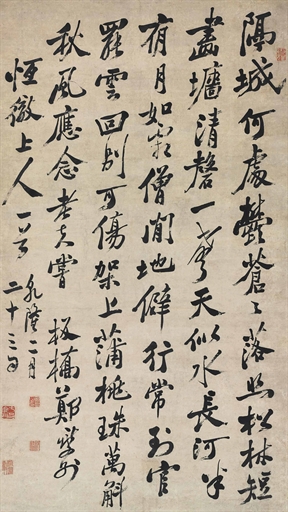 隔城何處鬱蒼〻落照松林短
畫墻清磬一聲天似水長河半
夜月如霜僧閒地僻行常到官
罷雲回別可傷架上蒲桃珠萬斛
秋風應念老夫嘗 板橋鄭燮
恆徹上人一首
乾隆二月
二十三日